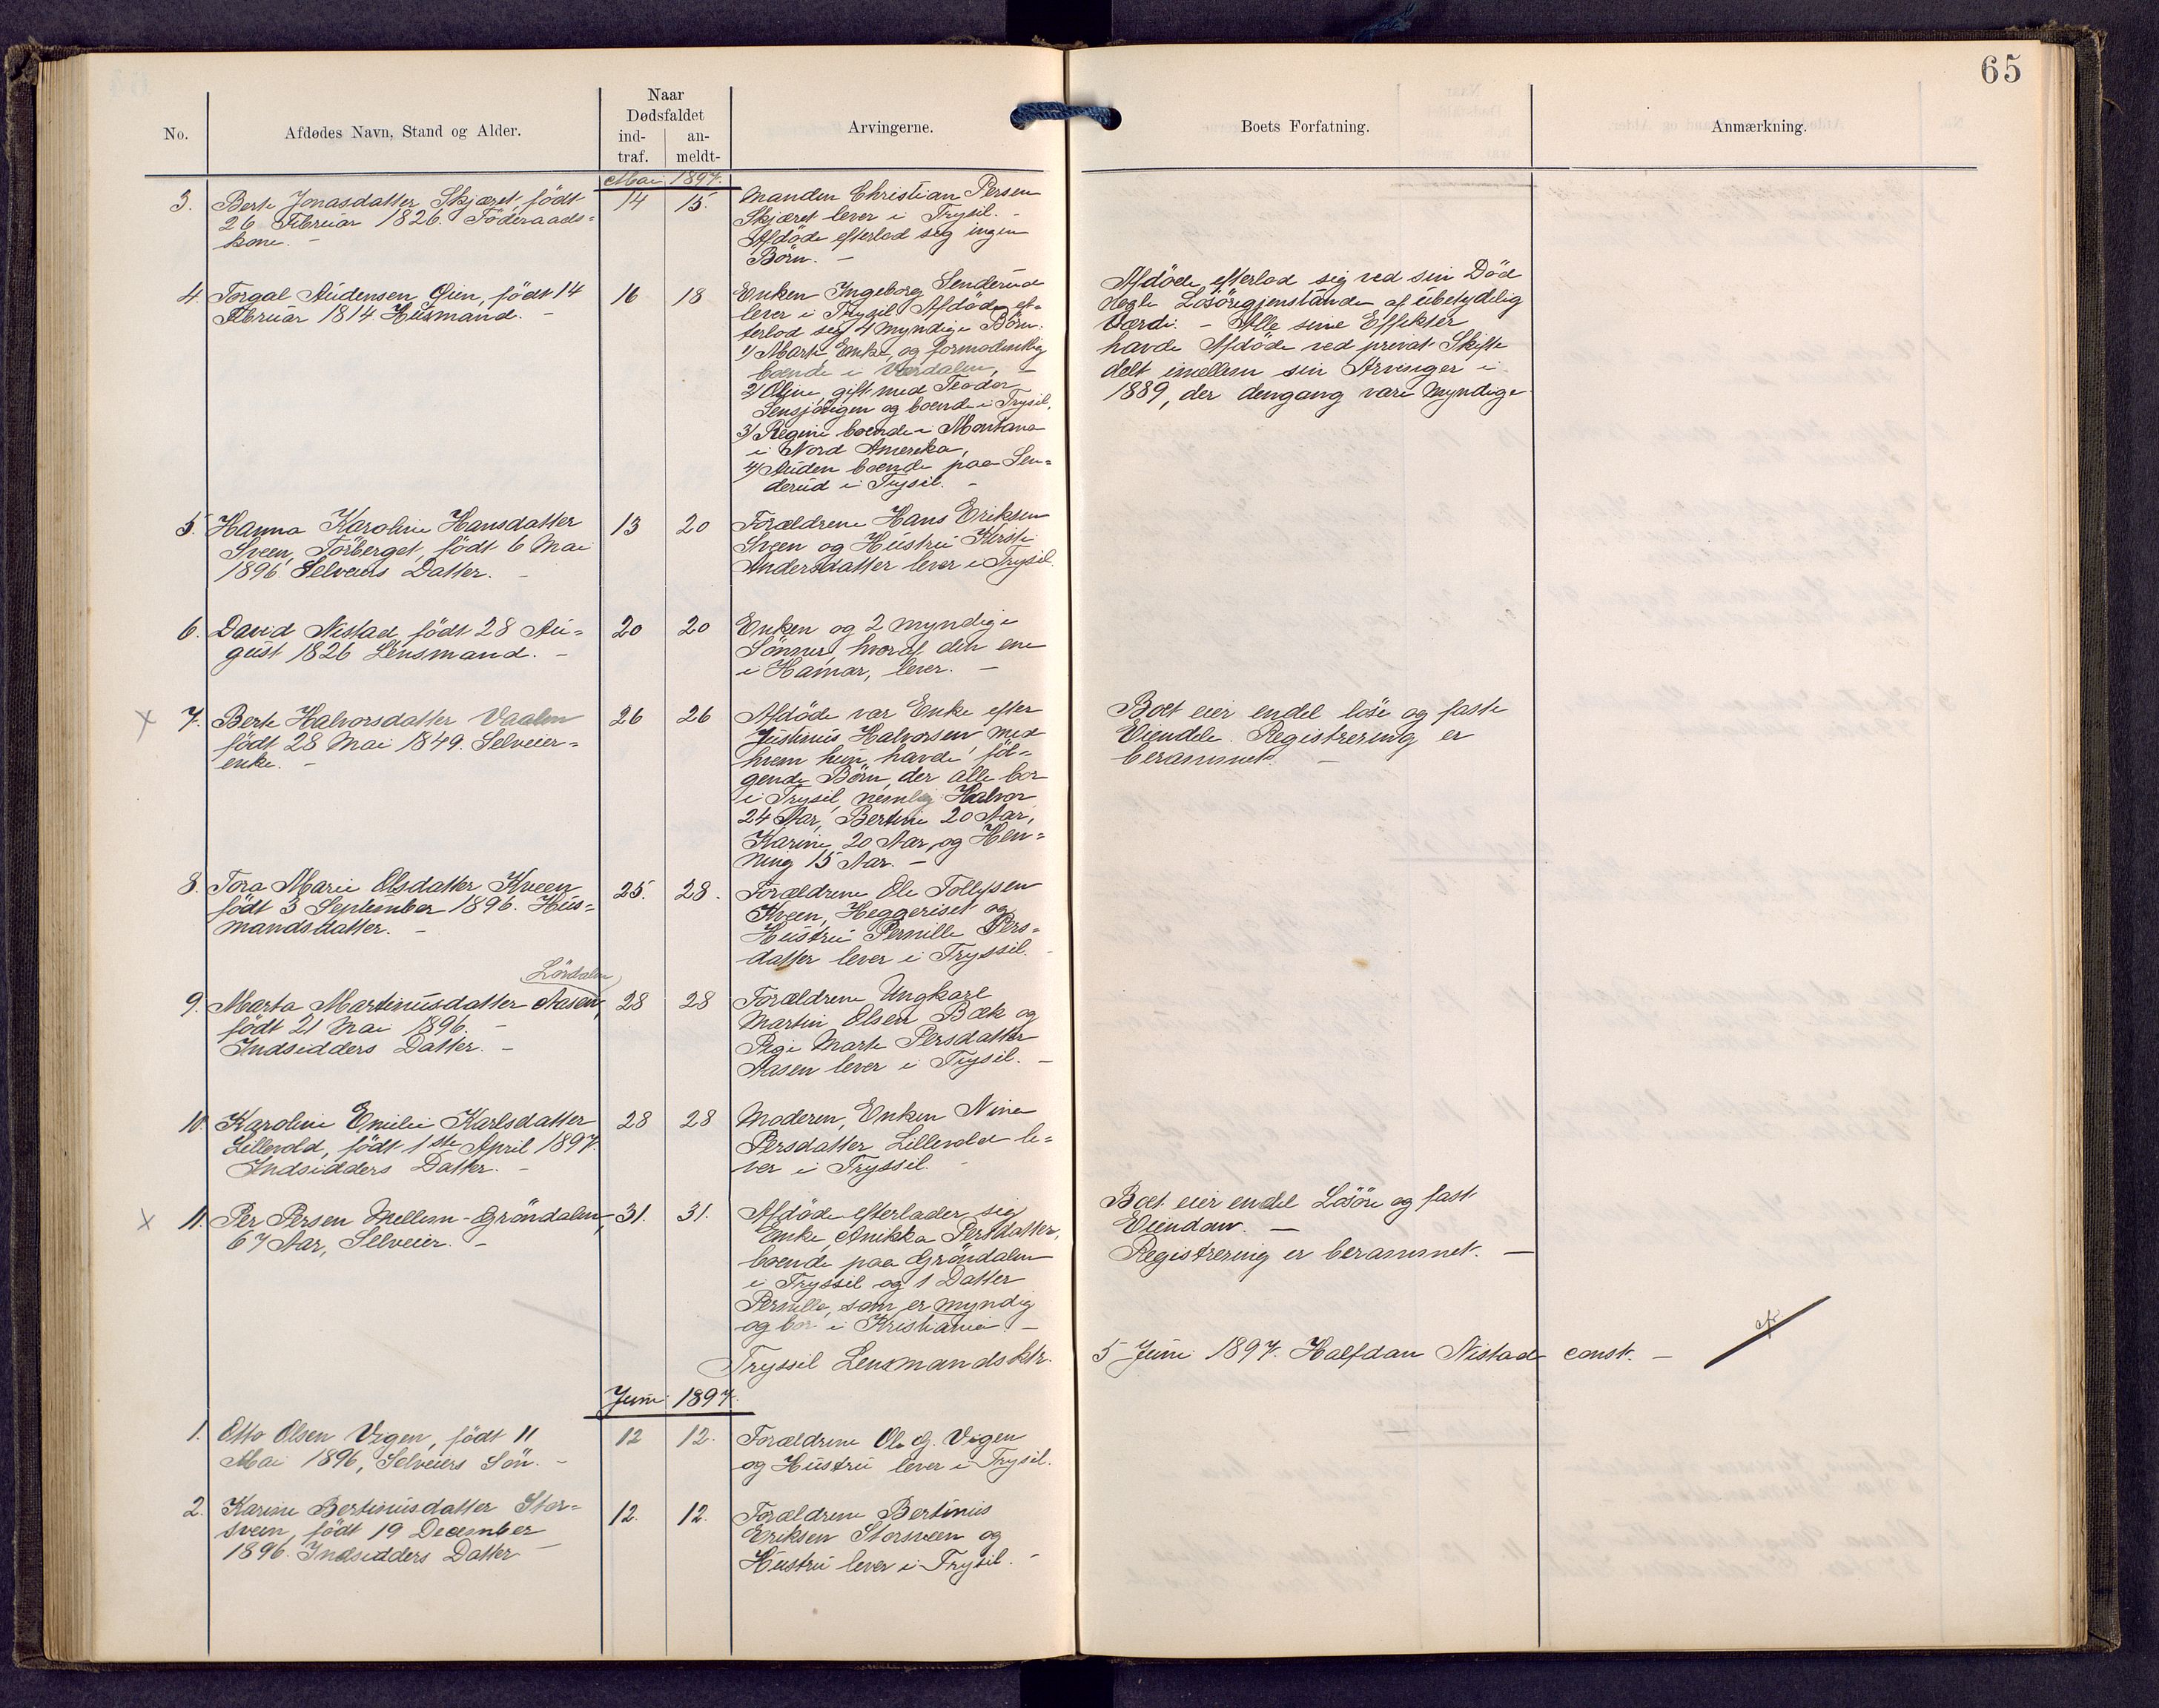 65
No.
Afdødes Navn, Stand og Alder.
Naar
Dødsfaldet
ind-
traf.
an-
meldt-
Arvingerne.
Boets Forfatning.
Anmærkning.
Mai 1897.
3. Berte Jonasdatter Skjæret, født
26 Februar 1826. Föderaads=
kone. -
14 15.
Manden Christian Persen
Skjæret lever i Trysil. -
Afdöde efterlod sig ingen
Börn. -
4. Torgal Audensen Öien, födt 14
Februar 1814. Husmand. -
16 18
Enken Ingeborg Senderud
lever i Trysil. Afdöde ef=
terlod sig 4 myndige Börn.
1/ Marte, Enke, og formodentlig
boende i Værdalen, -
2/ Oline, gift med Teodor
Sensjövigen og boende i Trysil,
3/ Regine boende i Montana
i Nord Amerika,
4/ Auden boende paa Sen=
derud i Trysil. -
Afdöde efterlod sig ved sin Död
nogle Lösöregjenstande af ubetydelig
Værdi. - Alle sine Effekter
havde Afdöde ved privat Skifte
delt imellem sin Arvinger i
1889, der dengang vare myndige
5. Hanna Karoline Hansdatter
Sveen, Törberget, födt 6 Mai
1896. Selveiers Datter. -
13 20
Forældrene Hans Eriksen
Sveen og Hustru Kirsti
Andersdatter lever i Trysil.
6. David Nistad, födt 28 Au=
gust 1826 Lensmand. -
20 20
Enken og 2 myndige
Sönner, hvoraf den ene
i Hamar, lever. -
x 7. Berte Halvorsdatter Vaalen
födt 28 Mai 1849. Selveier=
enke. -
26 26
Afdöde var Enke efter
Justinus Halvorsen med
hvem hun havde föl=
gende Börn, der alle bor
i Trysil, nemlig Halvor
24 Aar, Bertine 20 Aar,
Karine 20 Aar, og Hen=
ning 15 Aar. -
Boet eier endel löse og faste
Eiendele. Registrering er
berammet. -
8. Tora Marie Olsdatter Kveen
födt 3 September 1896. Hus=
mandsdatter. -
25. 28.
Forældrene Ole Tollefsen
Kveen, Heggeriset og
Hustru Pernille Pers=
datter lever i Tryssil. -
Lördalen
9. Marta Martinusdatter Aasen,
födt 21 Mai 1896. -
Indsidders Datter. -
28 28
Forældrene Ungkarl
Martin Olsen Bæk og
Pige Marte Persdatter
Aasen lever i Trysil. -
10. Karoline Emilie Karlsdatter
Lillevold, födt 1ste April 1897.
Indsidders Datter. -
28 28
Moderen, Enken Nina
Persdatter Lillevold le=
ver i Tryssil. -
x 11. Per Persen Mellem-Gröndalen,
67 Aar, Selveier. -
31. 31.
Afdöde efterlader sig
Enke Anikka Persdatter,
boende paa Gröndalen
i Tryssil og 1 Datter
Pernille, som er myndig
og bor i Kristiania. -
Boet eier endel Lösöre og fast
Eiendom. -
Registrering er berammet. -
Tryssil Lensmandsktr. 5 Juni 1897. Halfdan Nistad const. -
Juni 1897.
1. Otto Olsen Vegen, födt 11
Mai 1896, Selveiers Sön. -
12 12.
Forældrene Ole G. Vegen
og Hustru lever i Trysil.
2. Karine Bertinusdatter Stor=
sveen, födt 19 December
1896. Indsidders Datter -
12. 12.
Forældrene Bertinus
Eriksen Storsveen og
Hustru lever i Trysil. -